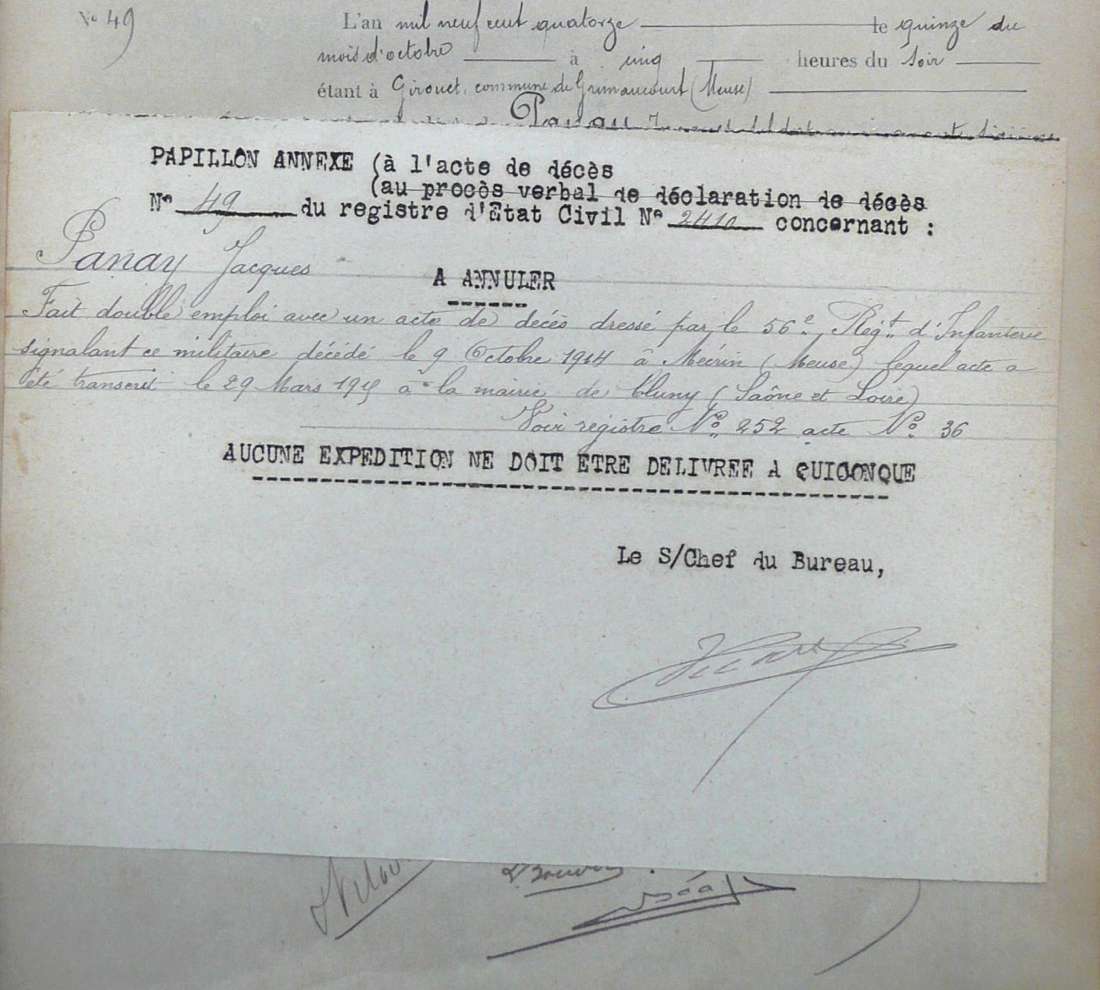 N° 49
L'an mil neuf cent quatorze le quinze du
mois d'octobre à cinq heures du soir
étant à Girouet, commune de Grimaucourt (Meuse)
Panay
PAPILLON ANNEXE (à l'acte de décès
(au procès verbal de déclaration de décès
N° 49 du registre d'Etat Civil N° 2410 concernant :
Panay Jacques
A ANNULER
Fait double emploi avec un acte de décès dressé par le 56e Régt d'Infanterie
signalant ce militaire décédé le 9 Octobre 1914 à Mécrin (Meuse) lequel acte a
été transcrit le 29 Mars 1915 à la mairie de Cluny (Saône et Loire)
Voir registre N° 252 acte N° 36
AUCUNE EXPEDITION NE DOIT ETRE DELIVREE A QUICONQUE
Le S/Chef du Bureau,